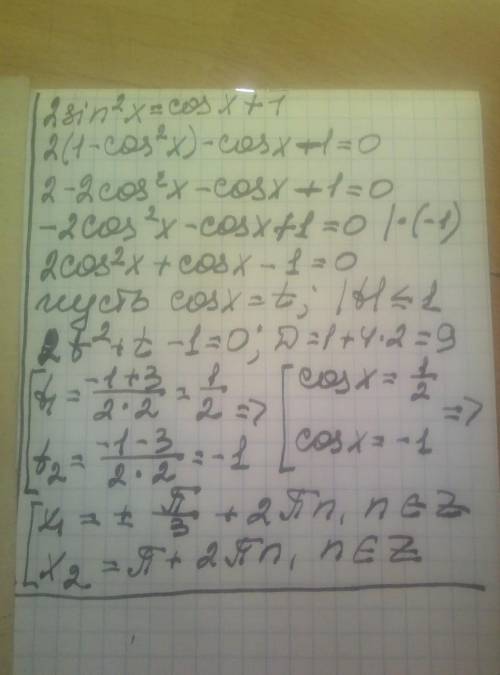 2sin²x = cosx + 1
2(1 - cos²x) - cosx - 1 = 0
2 - 2cos²x - cosx - 1 = 0
-2cos²x - cosx + 1 = 0 | · (-1)
2cos²x + cosx - 1 = 0
пусть cosx = t; |t| ≤ 1
2t² + t - 1 = 0; D = 1 + 4·2 = 9
[ t₁ = (-1+3)/(2·2) = 1/2 => [ cosx = 1/2 =>
t₂ = (-1-3)/(2·2) = -1 cosx = -1
[ x₁ = ± π/3 + 2πn, n ∈ Z
x₂ = π + 2πn, n ∈ Z